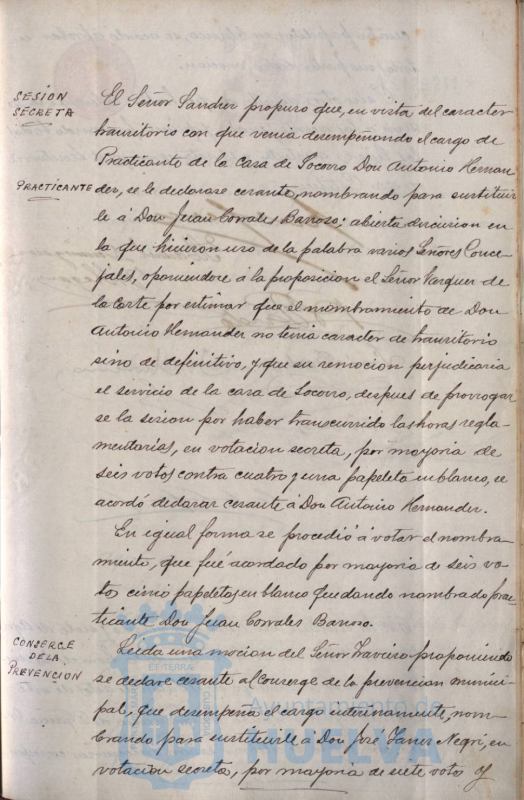 SESION
SECRETA
El Señor Sanchez propuso que, en vista del caracter
transitorio con que venia desempeñando el cargo de
Practicante de la Casa de Socorro Don Antonio Hernan
PRACTICANTE
dez, se le declarase cesante, nombrando para sustituir
le á Don Juan Corrales Barroso; abierta discusion en
la que hicieron uso de la palabra varios Señores Conce-
jales, oponiendose á la proposicion el Señor Vazquez de
la Corte por estimar que el nombramiento de Don
Antonio Hernandez no tenia caracter de transitorio
sino de definitivo, y que su remocion perjudicaria
el servicio de la casa de Socorro, despues de prorrogar
se la sesion por haber transcurrido las horas regla-
mentarias, en votacion secreta, por mayoria de
seis votos contra cuatro y una papeleta en blanco, se
acordó declarar cesante á Don Antonio Hernandez.
En igual forma se procedió á votar el nombra-
miento, que fué acordado por mayoria de seis vo-
tos cinco papeletas en blanco quedando nombrado Prac-
ticante Don Juan Corrales Barroso.
CONSERGE
DE LA
PREVENCION
Leida una mocion del Señor proponiendo
se declare cesante al Conserge de la prevencion munici-
pal, que desempeña el cargo interinamente, nom-
brando para sustituirle á Don José Negri, en
votacion secreta, por mayoria de siete votos y
Ayuntamiento de
HUELVA